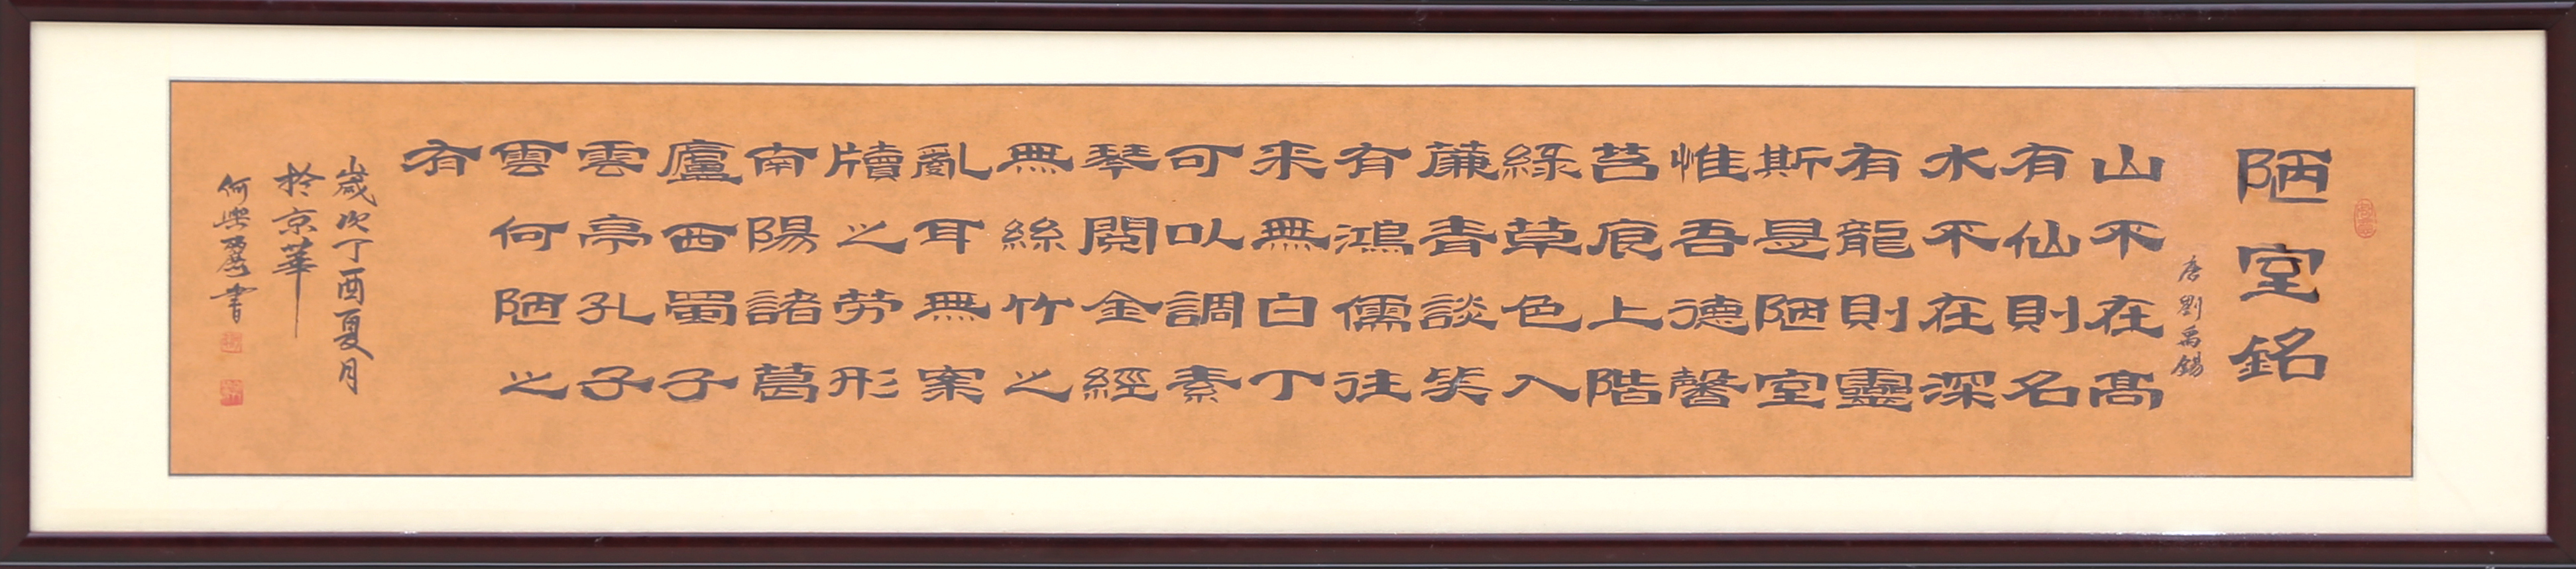 陋室銘
唐劉禹錫
山不在髙
有仙則名
水不在深
有龍則靈
斯是陋室
惟吾德馨
苔痕上階
綠草色入
簾青談笑
有鴻儒往
来無白丁
可以調素
琴閱金經
無絲竹之
亂耳無案
牘之勞形
南陽諸葛
廬西蜀子
雲亭孔子
雲何陋之
有
歲次丁酉夏月
於京華
何興書